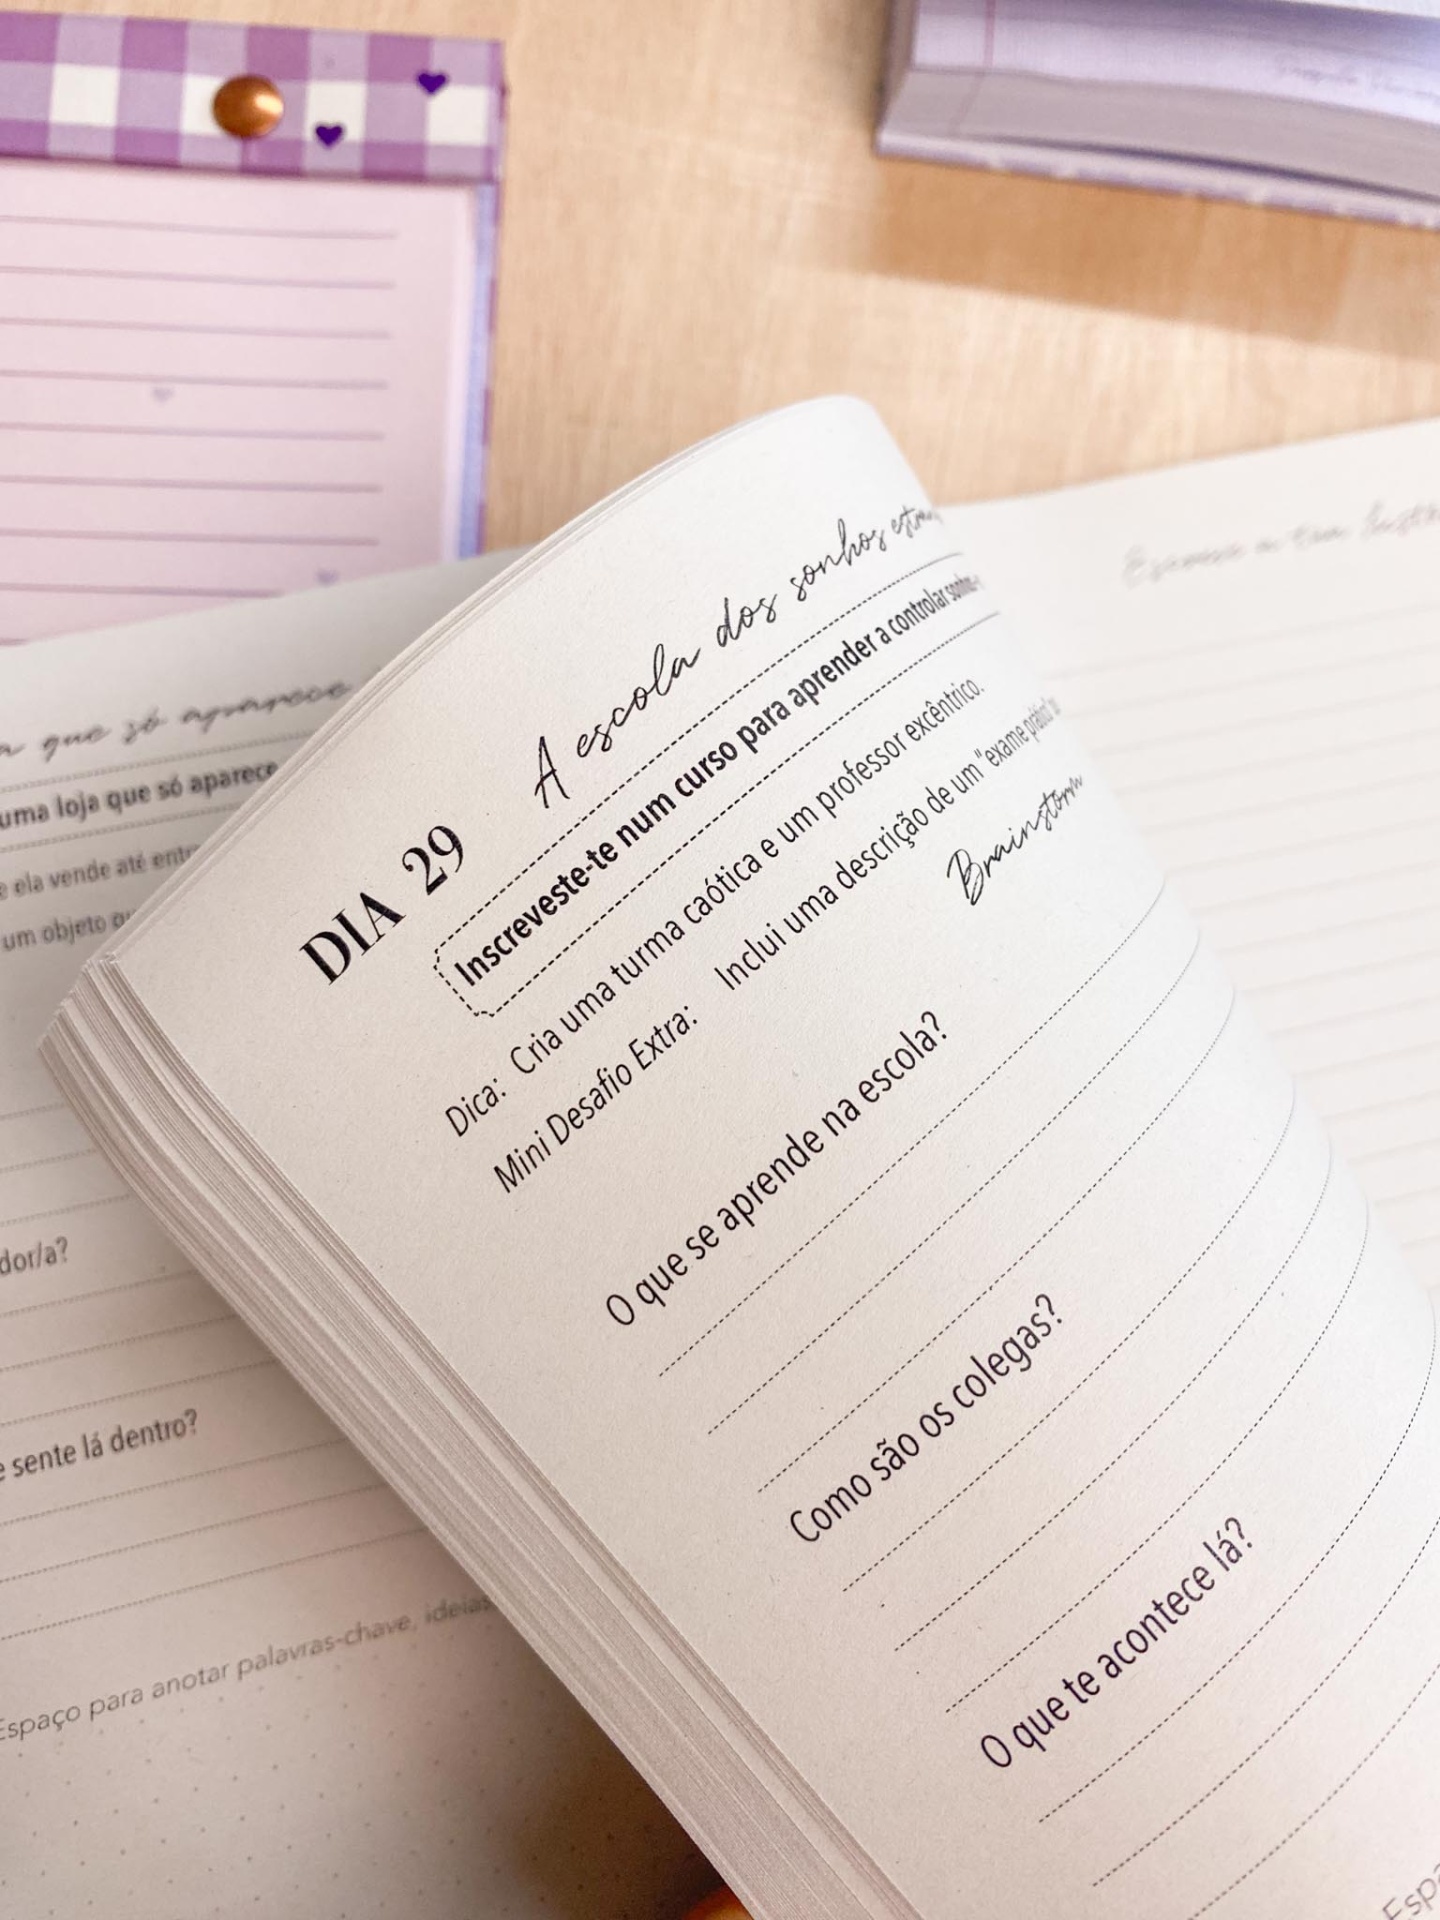 que só aparece
uma loja que só aparece
ela vende até
um objeto
dor/a?
sente lá dentro?
Espaço para anotar palavras-chave, ideias
DIA 29
A escola dos sonhos
Inscreveste-te num curso para aprender a controlar
Dica: Cria uma turma caótica e um professor excêntrico.
Mini Desafio Extra: Inclui uma descrição de um "exame prático"
Brainstorm
O que se aprende na escola?
Como são os colegas?
O que te acontece lá?
Escreve a tua